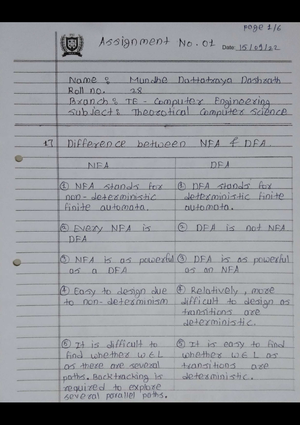 Page 1/6
Assignment No. 01
Date: 15/09/22
Name : Mundhe Dattatraya Dashrath
Roll no. 28
Branch : TE - Computer Engineering
Subject : Theorotical Computer Science
Difference between NFA & DFA.
NFA DFA
① NFA stands for ① DFA stands for
non-deterministic deterministic finite
finite automata. automata.
② Every NFA is ② DFA is not NFA
DFA
③ NFA is as powerful ③ DFA is as powerful
as a DFA as an NFA
④ Easy to design due ④ Relatively, more
to non-determinism difficult to design as
transitions are
deterministic.
⑤ It is difficult to ⑤ It is easy to find
find whether w ∈ L whether w ∈ L as
as there are several transitions are
paths. Backtracking is deterministic.
required to explore
several parallel paths.